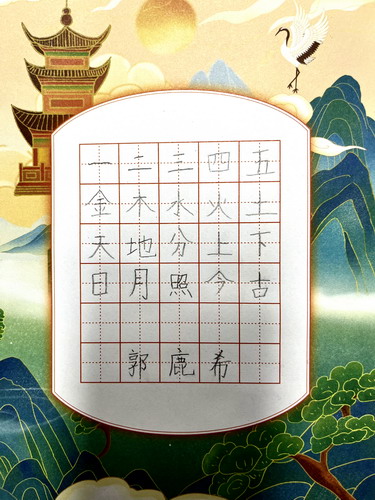 一二三四五
金木水火土
天地分上下
日月照今古
郭鹿希